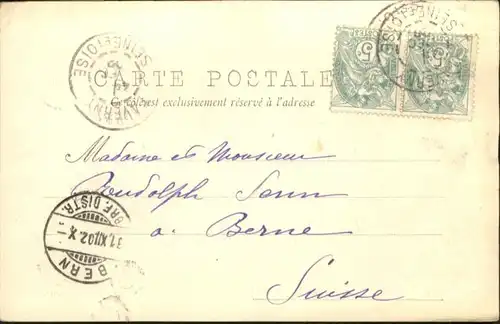 SEINE-ET-OISE
5
5
CARTE POSTALE
Ce côté est exclusivement réservé à l'adresse
Madame et Monsieur
Rudolph
a. Berne
Suisse
BERN
31.XII.02.X-
BRF. DISTR.